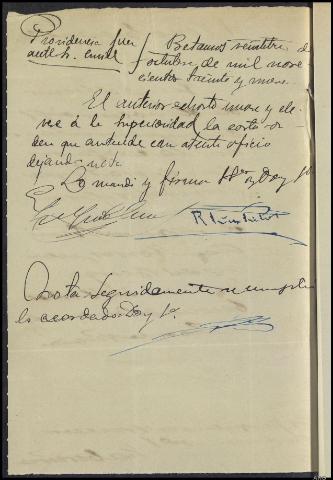 Providencia Juez
Betanzos veintitres de
octubre de mil nove-
cientos treinta y nueve
El anterior exhorto unase y ele-
vese á la Superioridad la carta or-
den que antecede con atento oficio
dejando nota
Lo mandó y firma S. Sª Doy fe
Nota Seguidamente se cumple
lo acordado. Doy fe.